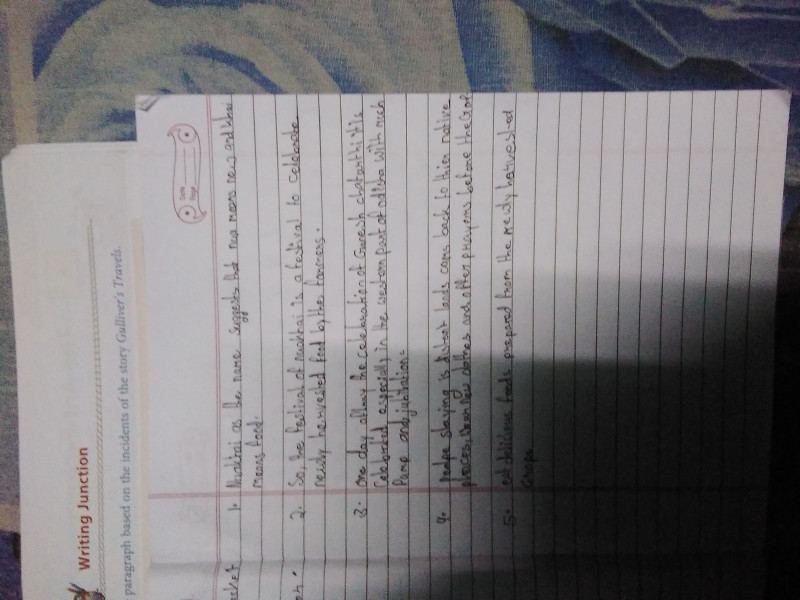 Writing Junction
paragraph based on the incidents of the story Gulliver's Travels.
Date
Page
1. Nuakhai as the name suggests that nua means new and khai
means food.
2. So, the festival of nuakhai is a festival to celebrate
newly harvested food by the farmers.
3. One day after the celebration of Ganesh chaturthi it is
Celebrated especially in the western part of odisha with much
Pump and jubilation.
4. People staying is distant lands come back to thier native
places, wear new clothes and offer prayers before the God
5. eat delicious foods prepared from the newly harvested
crops